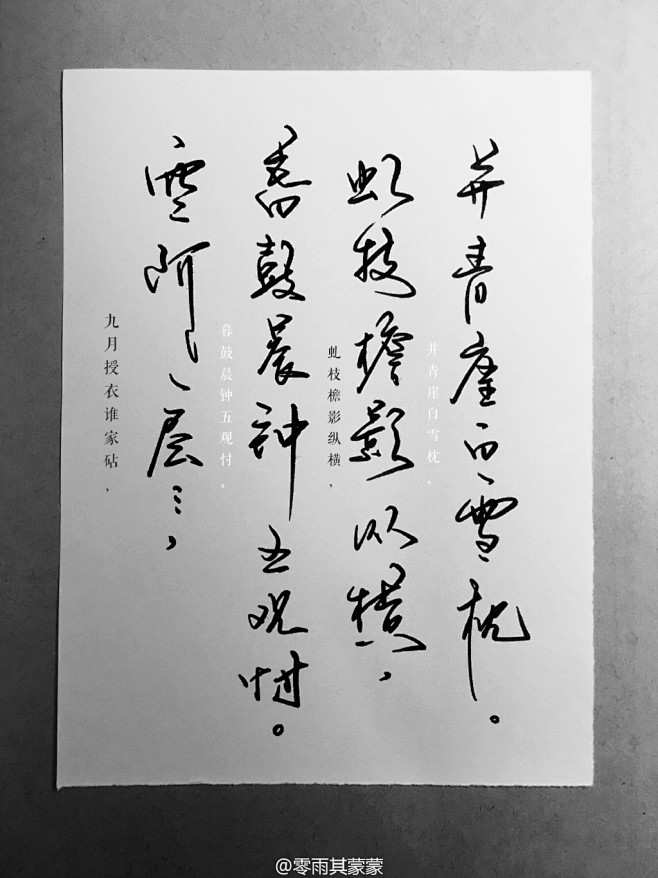 并青崖白雪枕。
并青崖白雪枕。
虬枝檐影纵横，
虬枝檐影纵横，
暮鼓晨钟五观忖。
暮鼓晨钟五观忖。
雲阶层，
九月授衣谁家砧，
@零雨其蒙蒙